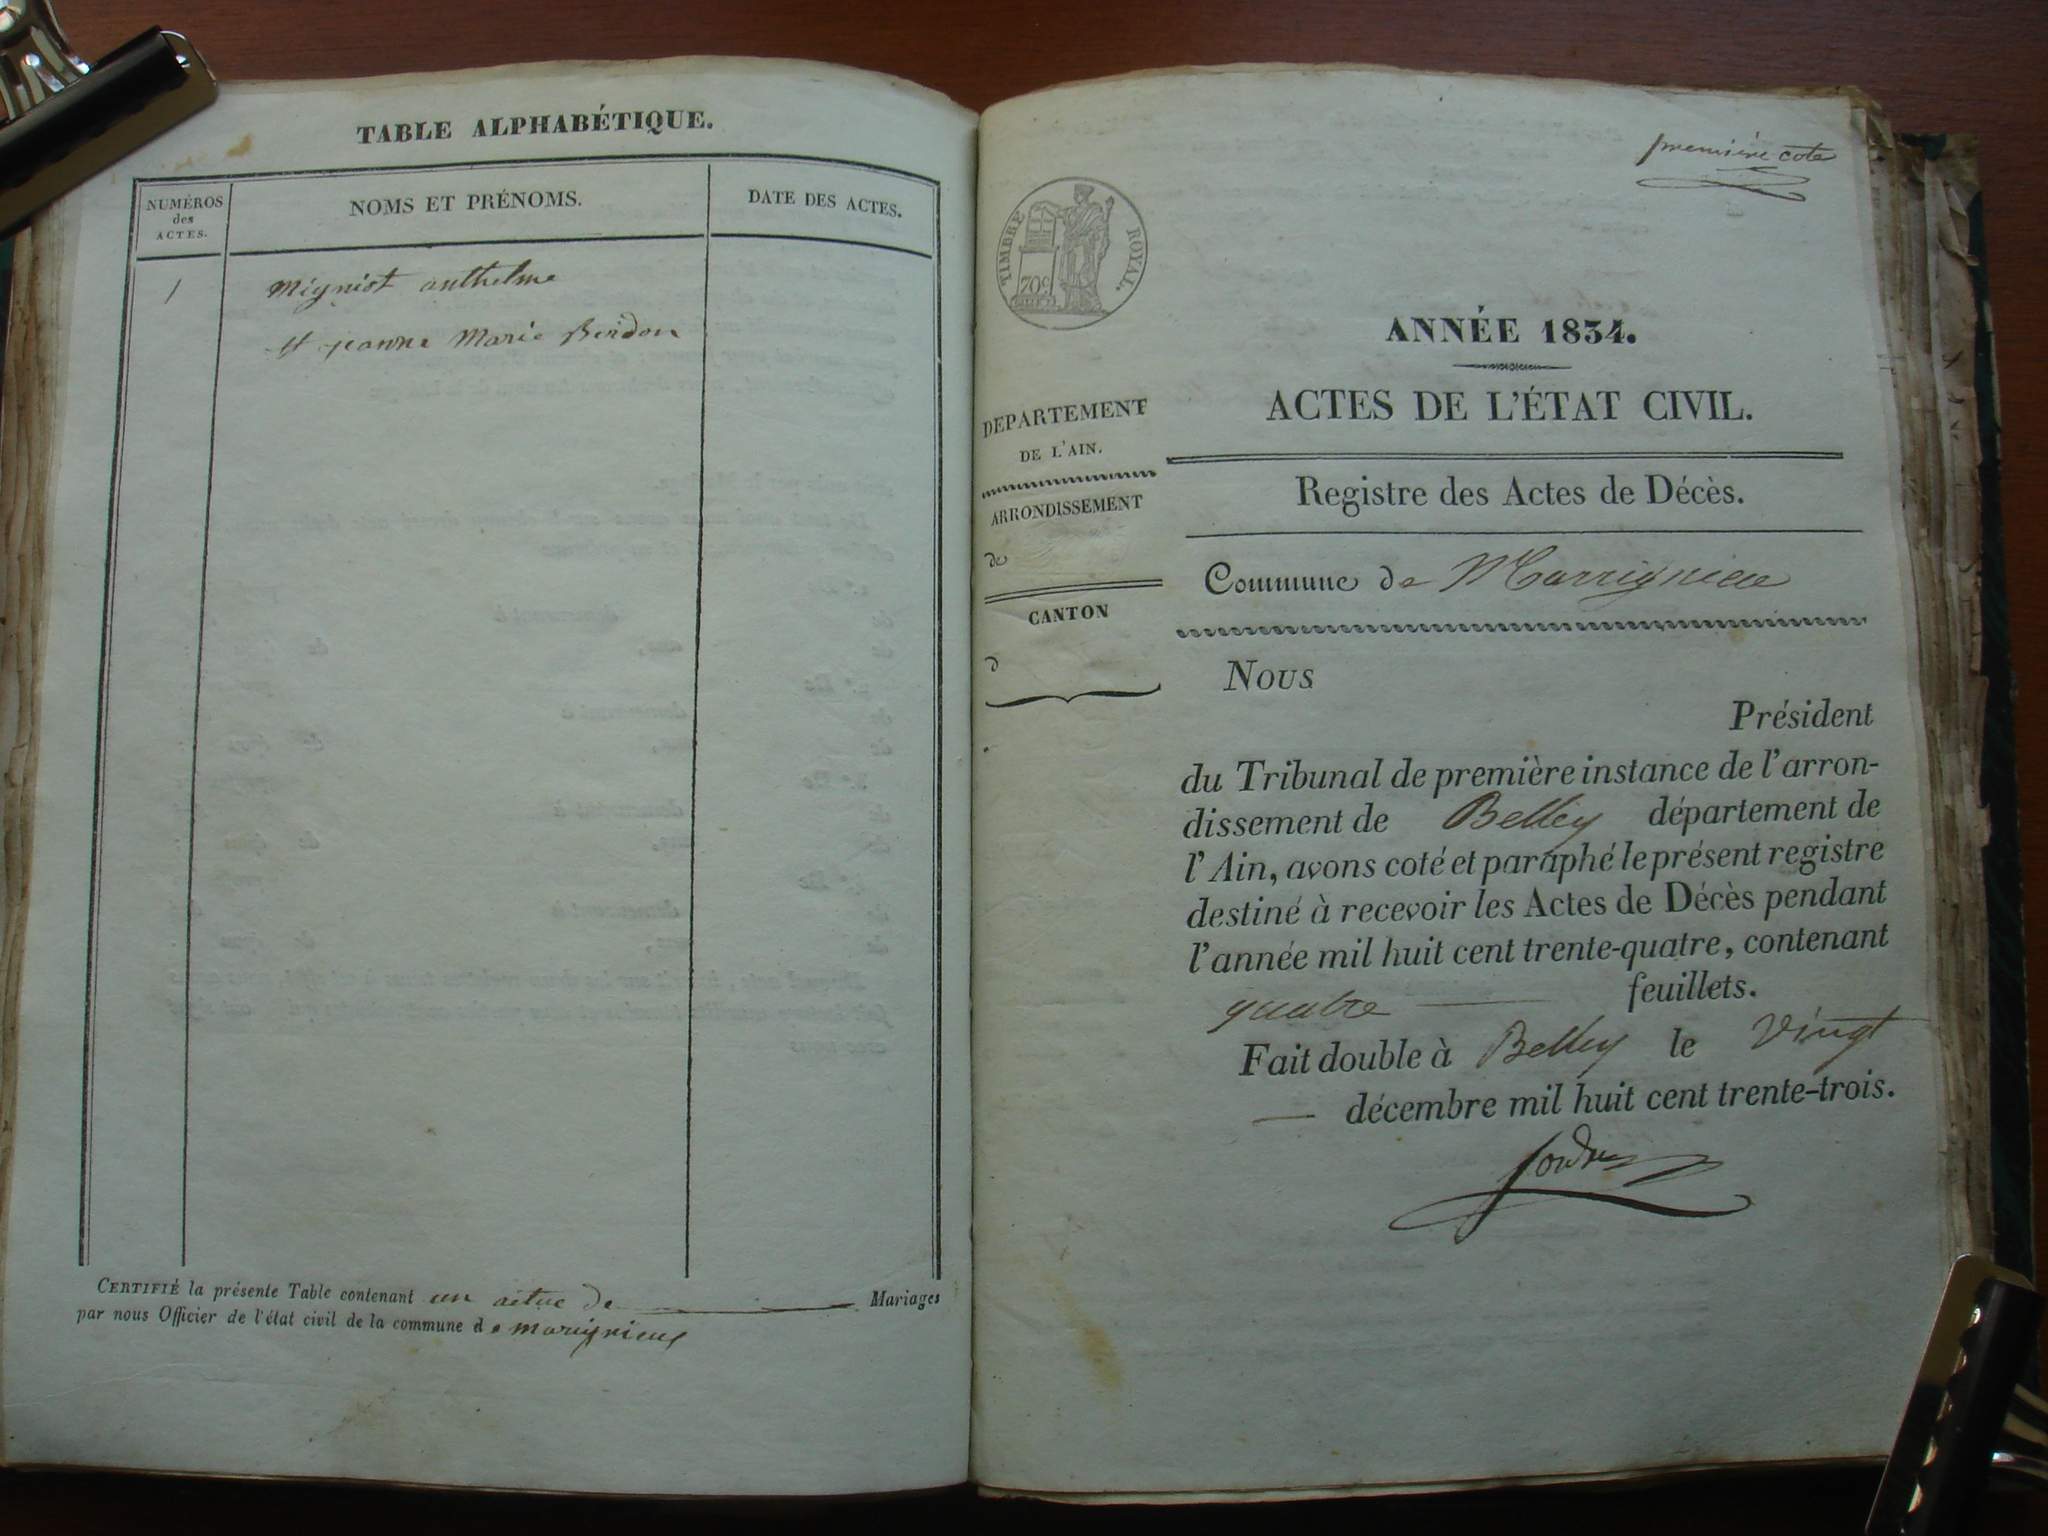 TABLE ALPHABÉTIQUE.
NUMÉROS
des
ACTES.
NOMS ET PRÉNOMS.
DATE DES ACTES.
1
Migniot anthelme
et jeanne Marie Beridon
CERTIFIÉ la présente Table contenant un actue de Mariages
par nous Officier de l'état civil de la commune de marignieux
première cote
TIMBRE ROYAL.
70c
DEPARTEMENT
DE L'AIN.
ARRONDISSEMENT
de
CANTON
d
ANNÉE 1834.
ACTES DE L'ÉTAT CIVIL.
Registre des Actes de Décès.
Commune de Marignieu
Nous
Président
du Tribunal de première instance de l'arron-
dissement de Belley département de
l'Ain, avons coté et paraphé le présent registre
destiné à recevoir les Actes de Décès pendant
l'année mil huit cent trente-quatre, contenant
quatre feuillets.
Fait double à Belley le vingt
décembre mil huit cent trente-trois.